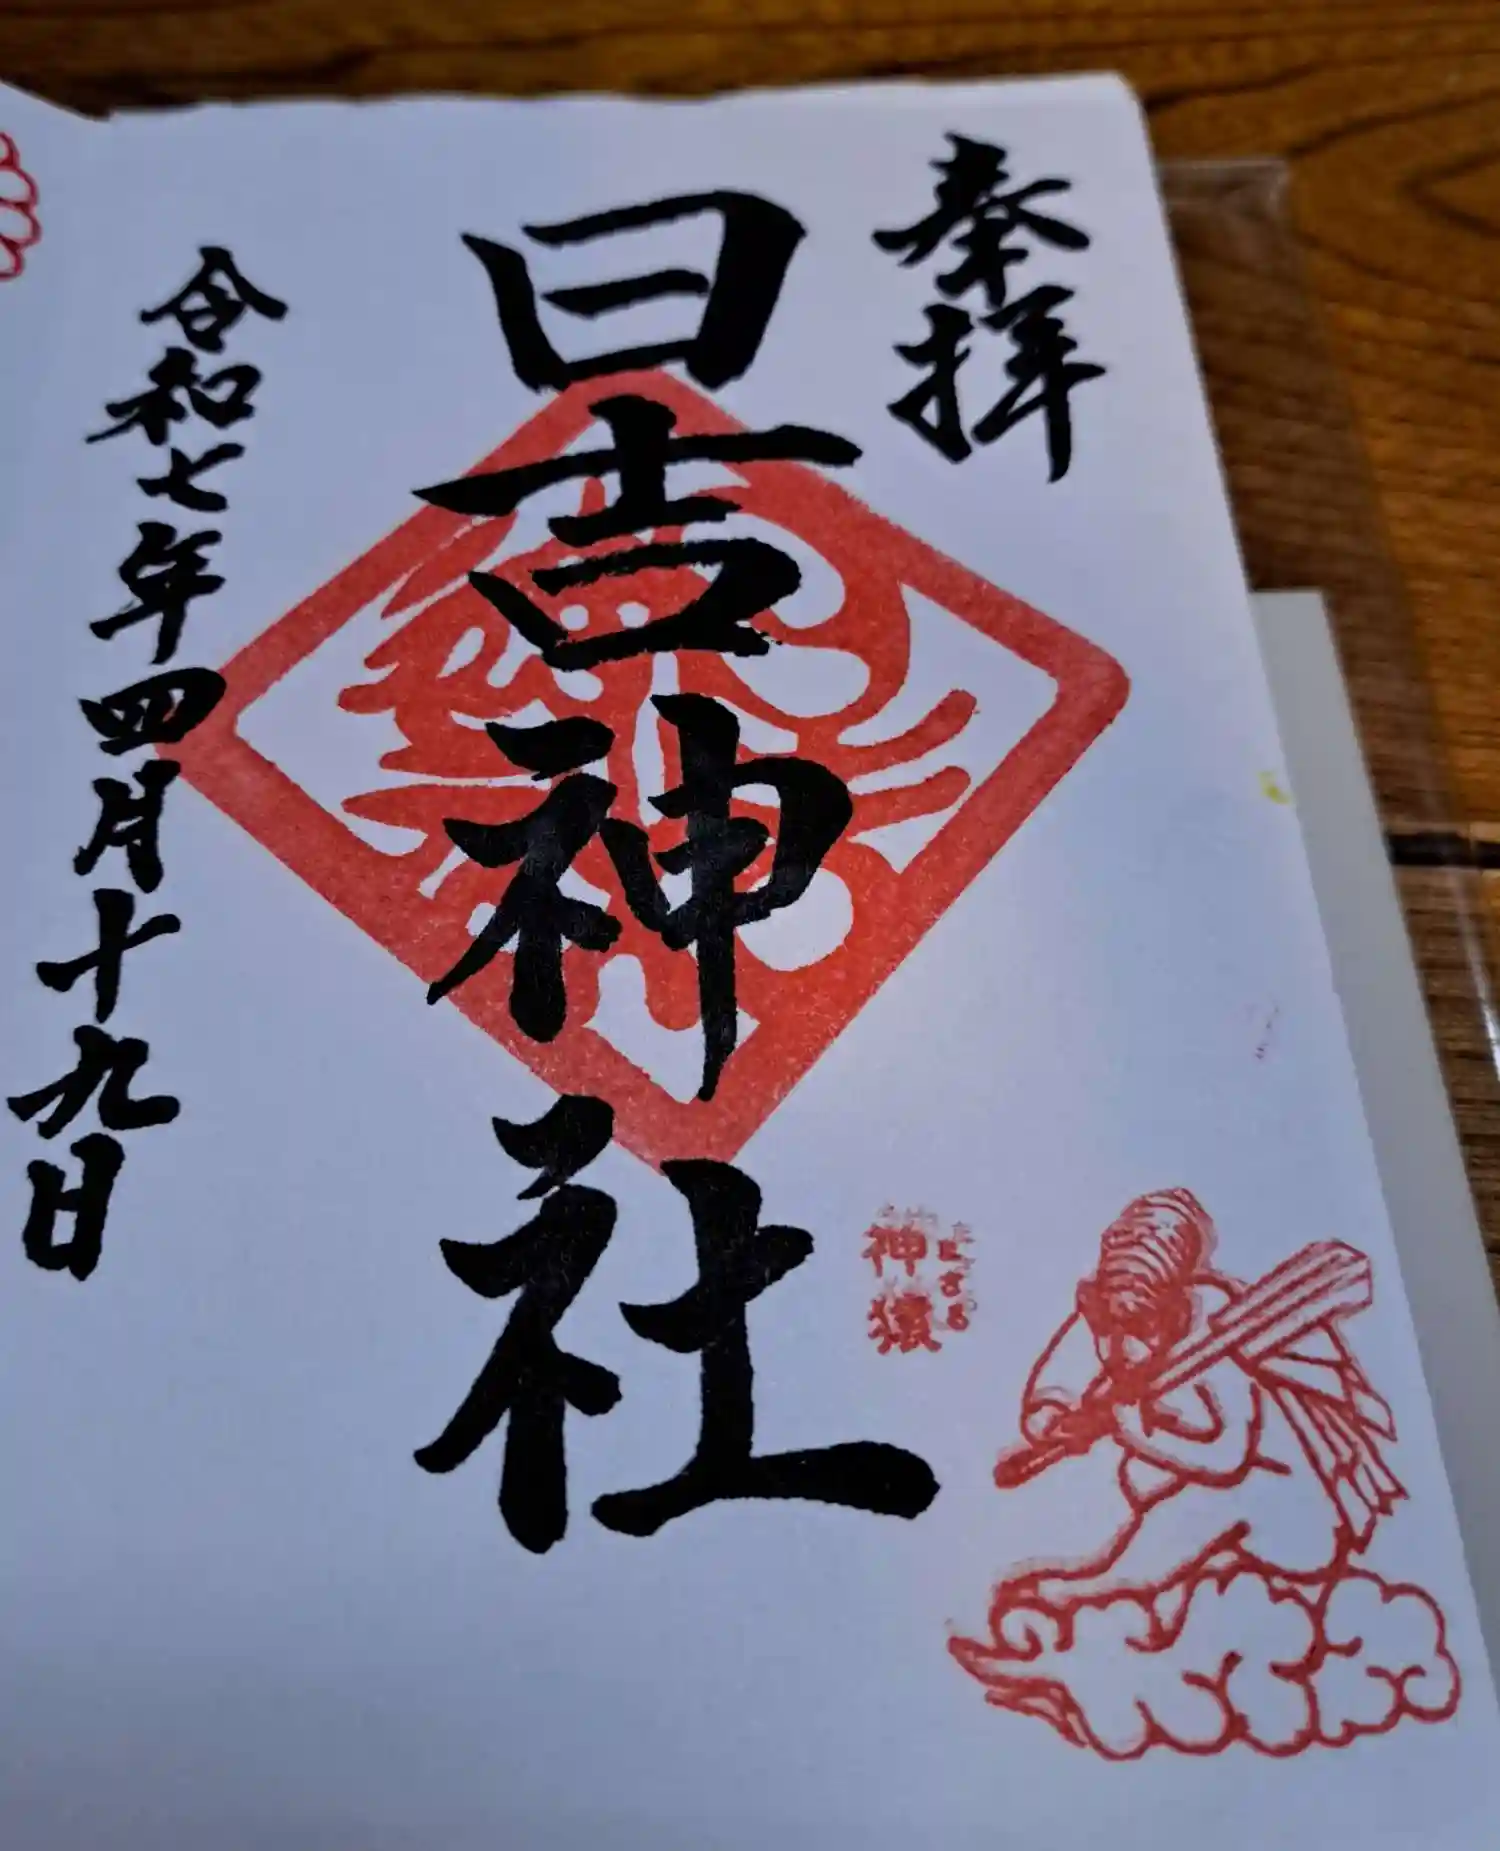 奉拝
日吉神社
まさる
神猿
令和七年四月十九日